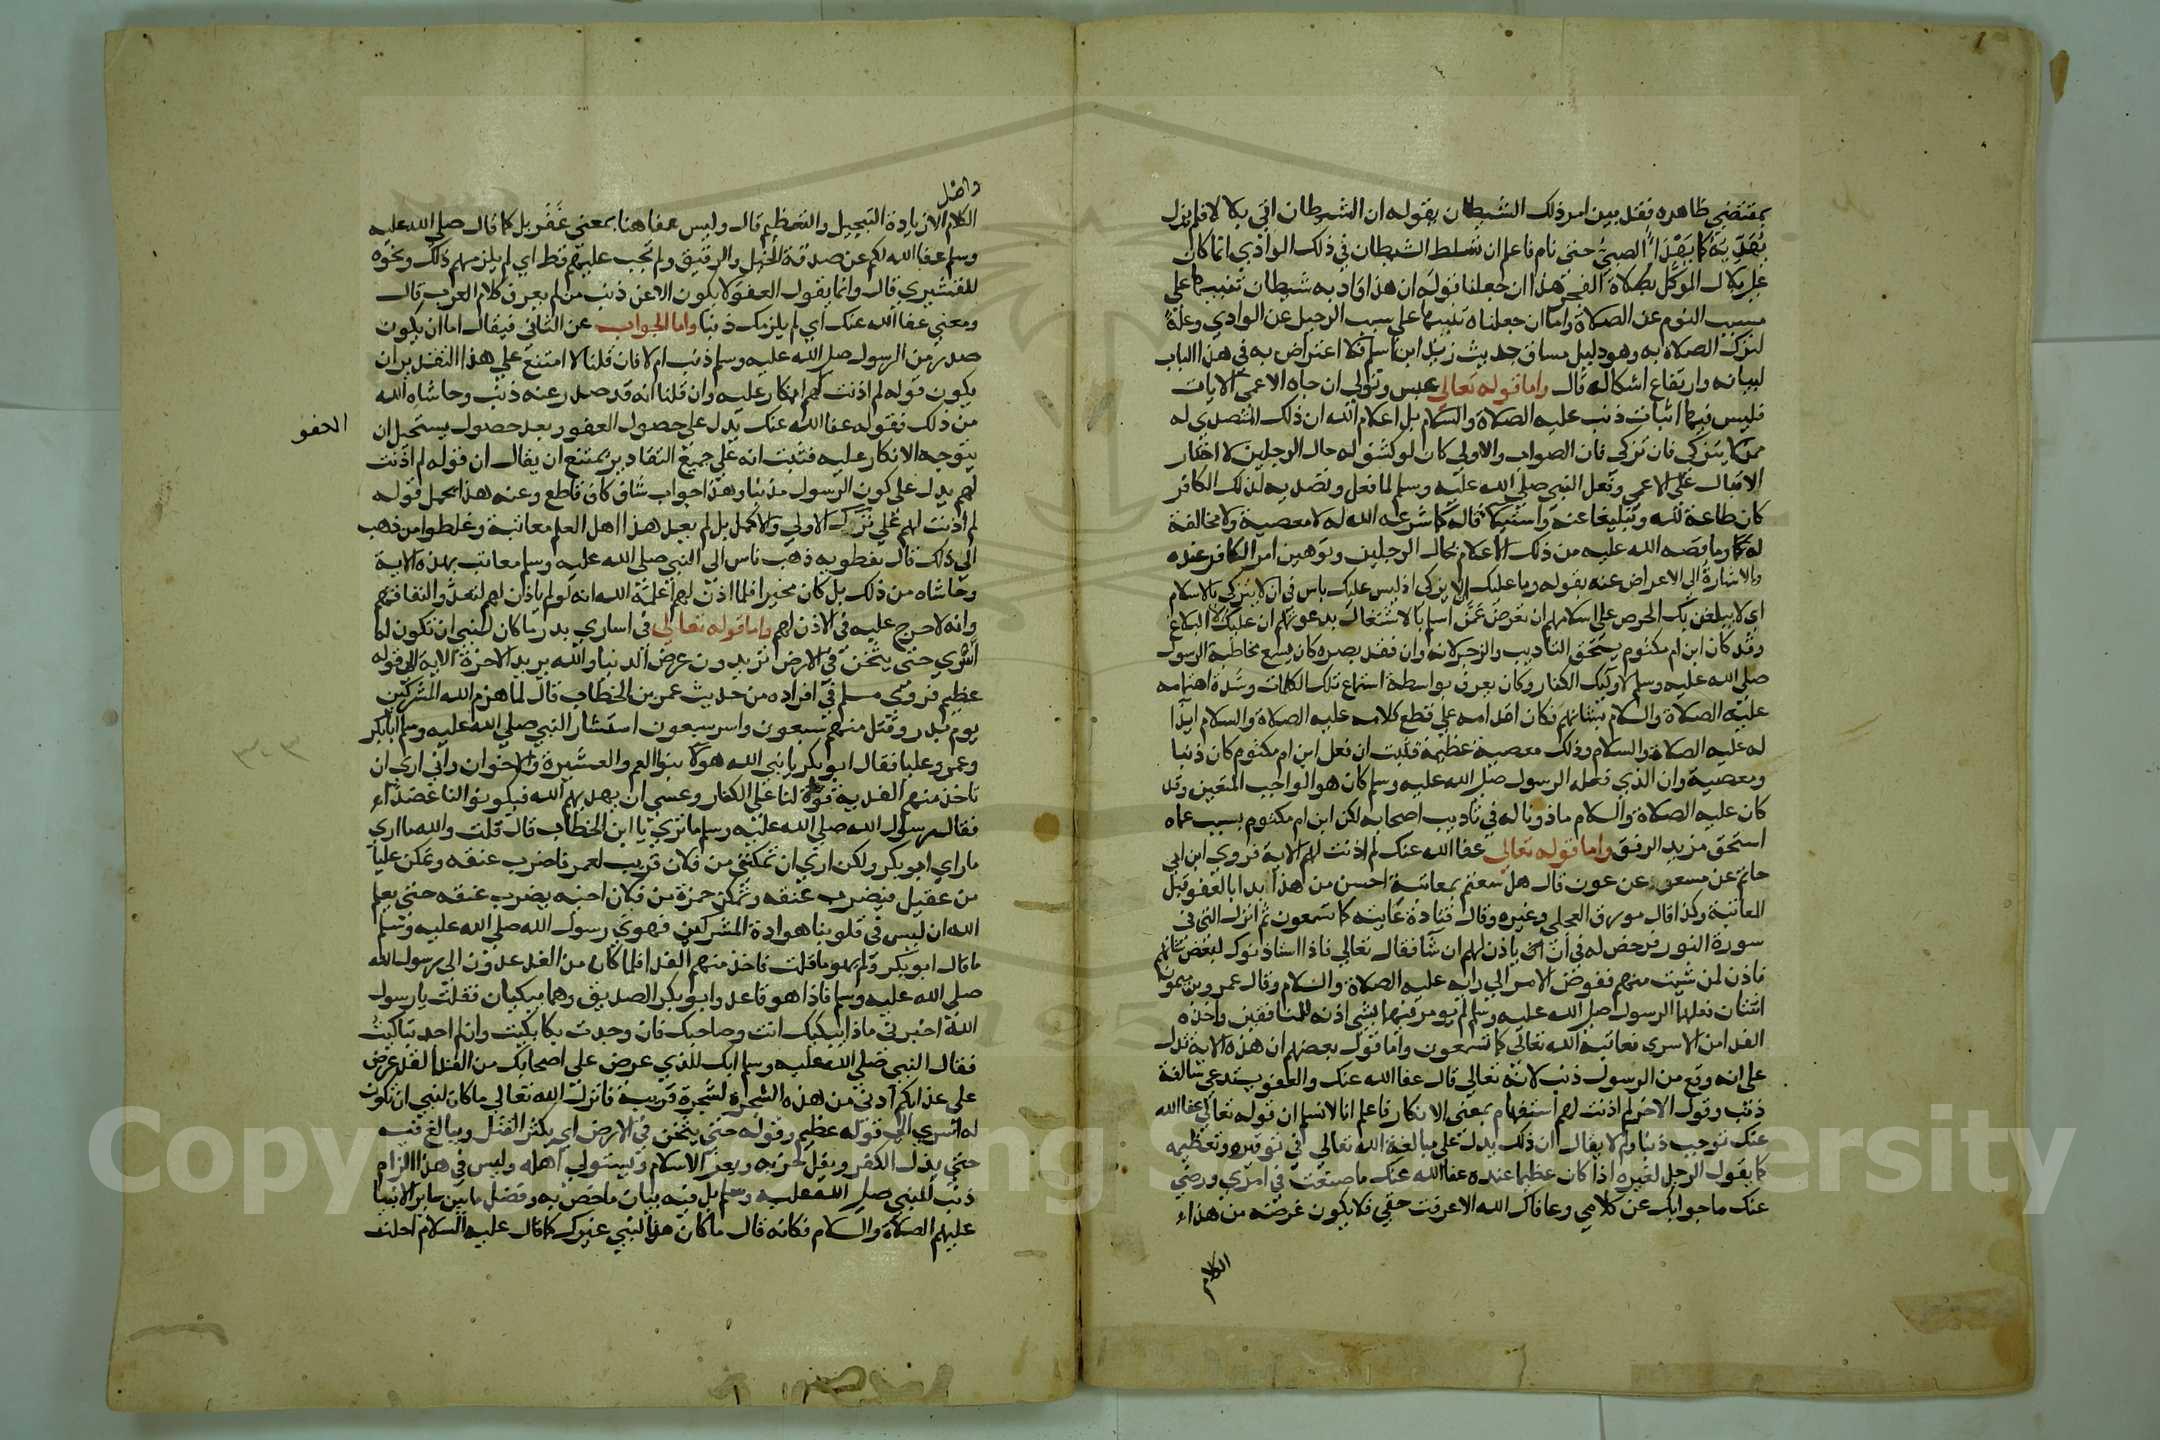 بمقتضى ظاهره فقد بين امر ذلك الشيطان بقوله ان الشيطان اتى بلالا فلم يزل
يُهَدِّيهُ كما يُهَدَّا الصبيُّ حتى نام فاعلم ان تسلط الشيطان في ذلك الوادي انما كان
على بلال الموكَّل بصلاة الفجر هذا ان جعلنا قوله ان هذا واد به شيطان تنبيها على
سبب النوم عن الصلاة واما ان جعلناه تنبيها على سبب الرحيل عن الوادي وعلةً
لترك الصلاة به وهو دليل مساق حديث زيد ابن اسلم فلا اعتراض به في هذا الباب
لبيانه وارتفاع اشكاله قال واما قوله تعالى عبس وتولى ان جاه الاعمى الايات
فليس فيها اثبات ذنب عليه الصلاة والسلام بل اعلام الله ان ذلك المتصدى له
ممن لا يتزكى فان تزكى فان الصواب والاولى كان لو كشف له حال الرجلين لاختار
الاقبال على الاعمى وفعل النبي صلى الله عليه وسلم لما فعل وتصديه لذلك الكافر
كان طاعة لله وتبليغا عنه واستيلافا له كما شرعه الله له لا معصية ولا مخالفة
له وما قصه الله عليه من ذلك الاعلام بحال الرجلين وتوهين امر الكافر عنده
والاشارة الى الاعراض عنه بقوله وما عليك الا يزكى اذ ليس عليك باس في ان لا يتزكى بالاسلام
اى لا يبلغن بك الحرص على اسلامهم ان تعرض عمن اسلم بالاشتغال بدعوتهم ان عليك الا البلاغ
وقد كان ابن ام مكتوم يستحق التاديب والزجر لانه وان فقد بصره كان يسمع مخاطبة الرسول
صلى الله عليه وسلم لاوليك الكفار وكان يعرف بواسطة استماع تلك الكلمات وشدة اهتمامه
عليه الصلاة والسلام بشانهم فكان اقدامه على قطع كلامه عليه الصلاة والسلام ايذا
له عليه الصلاة والسلام وذلك معصية عظيمة فثبت ان فعل ابن ام مكتوم كان ذنبا
ومعصية وان الذي فعله الرسول صلى الله عليه وسلم كان هو الواجب المتعين وقد
كان عليه الصلاة والسلام ماذونا له في تاديب اصحابه لكن ابن ام مكتوم بسبب عماه
استحق مزيد الرفق واما قوله تعالى عفا الله عنك لم اذنت لهم الاية فروى ابن ابي
حاتم عن مسعر عن عون قال هل سمعتم بمعاتبة احسن من هذا بدا بالعفو قبل
المعاتبة وكذا قال مورق العجلي وغيره وقال قتادة عاتبه كما تسمعون ثم انزل التي في
سورة النور فرخص له في ان ياذن لهم ان شا فقال تعالى فاذا استاذنوك لبعض شانهم
فاذن لمن شيت منهم ففوض الامر الى رايه عليه الصلاة والسلام وقال عمرو بن ميمون
اثنتان فعلهما الرسول صلى الله عليه وسلم لم يومر فيهما بشى اذنه للمنافقين واخذه
الفدا من الاسرى فعاتبه الله تعالى كما تسمعون واما قول بعضهم ان هذه الاية تدل
على انه وقع من الرسول ذنب لانه تعالى قال عفا الله عنك والعفو يستدعى سالفة
ذنب وقول الاخر لم اذنت لهم استفهام بمعنى الانكار فاعلم انا لا نسلم ان قوله تعالى عفا الله
عنك توجب ذنبا ولم لا يقال ان ذلك يدل على مبالغة الله تعالى في توقيره وتعظيمه
كما يقول الرجل لغيره اذا كان عظيما عنده عفا الله عنك ما صنعت في امري ورضى
عنك ما جوابك عن كلامي وعافاك الله الا عرفت حقي فلا يكون غرضه من هذا
الكلام
الكلام الا زيادة التبجيل والتعظيم قال وليس عفا هنا بمعنى غَفَر بل كما قال صلى الله عليه
وسلم عفا الله لكم عن صدقة الخيل والرقيق ولم تجب عليهم قط اي لم يلزمهم ذلك ونحوه
للقشيري قال وانما يقول العفو لا يكون الا عن ذنب من لم يعرف كلام العرب قال
ومعنى عفا الله عنك اي لم يلزمك ذنبا واما الجواب عن الثاني فيقال اما ان يكون
صدر من الرسول صلى الله عليه وسلم ذنب ام لا فان قلنا لا امتنع على هذا التقدير ان
يكون قوله لم اذنت لهم انكار عليه وان قلنا انه قد صدر عنه ذنب وحاشاه الله
من ذلك فقوله عفا الله عنك يدل على حصول العفو وبعد حصول يستحيل ان
العفو
يتوجه الانكار عليه فثبت انه على جميع التقادير يمتنع ان يقال ان قوله لم اذنت
لهم يدل على كون الرسول مذنبا وهذا جواب شاف كاف قاطع وعنه هذا يحمل قوله
لم اذنت لهم على ترك الاولى والاكمل بل لم يعد هذا اهل العلم معاتبة وغلطوا من ذهب
الى ذلك قال نفطويه ذهب ناس الى النبي صلى الله عليه وسلم معاتب بهذه الاية
وحاشاه من ذلك بل كان مخيرا فلما اذن لهم اعلمه الله انه لو لم ياذن لهم لقعدوا لنفاقهم
وانه لا حرج عليه في الاذن لهم واما قوله تعالى في اسارى بدر ما كان لنبي ان تكون له
اسرى حتى يثخن في الارض تريدون عرض الدنيا والله يريد الاخرة الاية الى قوله
عظيم فروى مسلم في افراده من حديث عمر بن الخطاب قال لما هزم الله المشركين
يوم بدر وقتل منهم سبعون واسر سبعون استشار النبي صلى الله عليه وسلم ابابكر
وعمر وعليا فقال ابو بكر يا نبي الله هولا بنوا العم والعشيرة والاخوان واني ارى ان
تاخذ منهم الفدية قوة لنا على الكفار وعسى ان يهديهم الله فيكونوا لنا عضدا
فقال رسول الله صلى الله عليه وسلم ما ترى يا ابن الخطاب قال قلت والله ما ارى
ما راى ابو بكر ولكن ارى ان تمكنني من فلان قريب لعمر فاضرب عنقه وتمكن عليا
من عقيل فيضرب عنقه وتمكن حمزة من فلان اخيه يضرب عنقه حتى يعلم
الله ان ليس في قلوبنا هوادة للمشركين فهوى رسول الله صلى الله عليه وسلم
ما قال ابو بكر ولم يهو ما قلت فاخذ منهم الفدا فلما كان من الغد غدوت الى رسول الله
صلى الله عليه وسلم فاذا هو قاعد وابو بكر الصديق وهما يبكيان فقلت يا رسول
الله اخبرني ماذا يبكيك انت وصاحبك فان وجدت بكا بكيت وان لم اجد تباكيت
فقال النبي صلى الله عليه وسلم ابك للذي عرض على اصحابك من الفدا لقد عرض
على عذابكم ادنى من هذه الشجرة لشجرة قريبة فانزل الله تعالى ما كان لنبي ان تكون
له اسرى الى قوله عظيم وقوله حتى يثخن في الارض اي يكثر القتل ويبالغ فيه
حتى يذل الكفر ويقل حزبه ويعز الاسلام ويستولي اهله وليس في هذا الزام
ذنب للنبي صلى الله عليه وسلم بل فيه بيان ما خص به وفضل ما بين ساير الانبيا
عليهم الصلاة والسلام فكانه قال ما كان هذا لنبي غيرك كما قال عليه السلام احلت